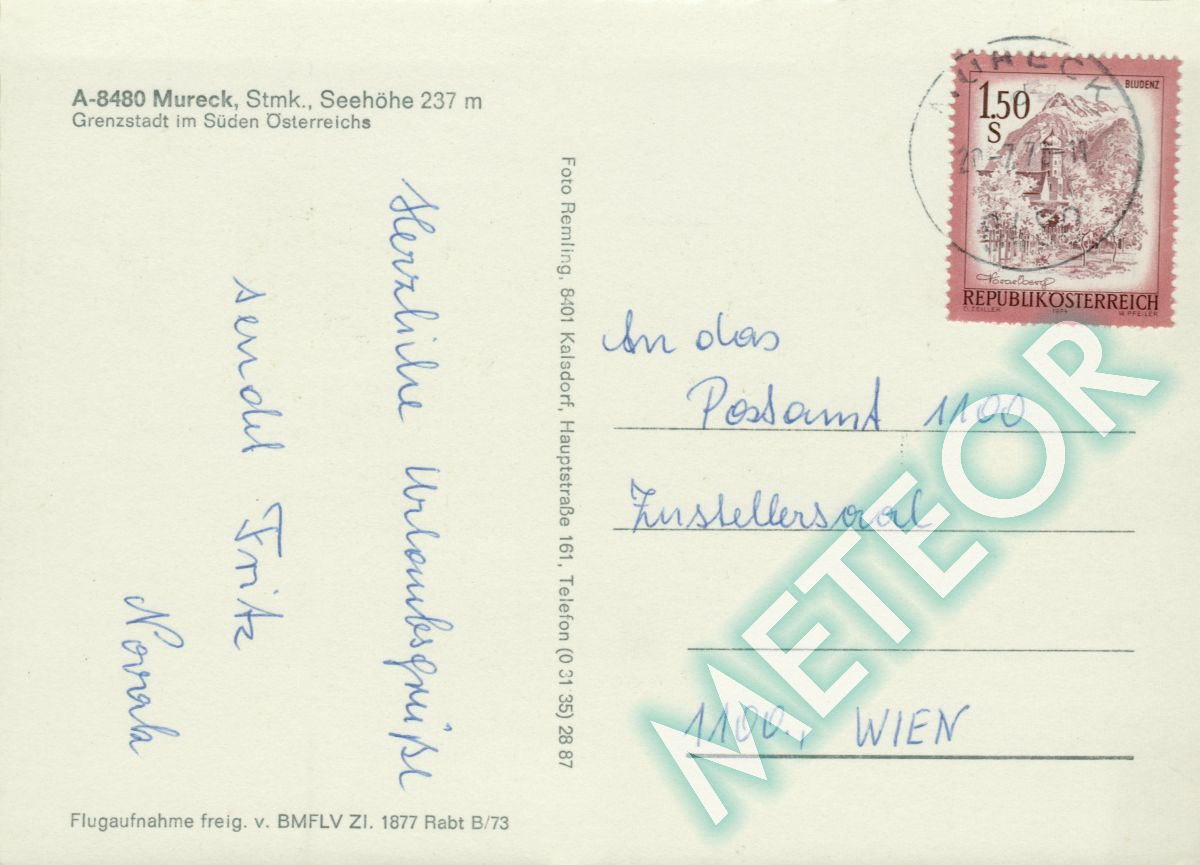 A-8480 Mureck, Stmk., Seehöhe 237 m
Grenzstadt im Süden Österreichs
Herzliche Urlaubsgrüße
sendet Fritz
Flugaufnahme freig. v. BMFLV Zl. 1877 Rabt B/73
Foto Remling, 8401 Kalsdorf, Hauptstraße 161, Telefon (0 31 35) 28 87
MURECK
8480
BLUDENZ
1.50
S
Vorarlberg
REPUBLIK ÖSTERREICH
O.ZEILLER 1974 W.PFEILER
An das
Postamt 1100
Zustellersaal
1100., WIEN
METEOR